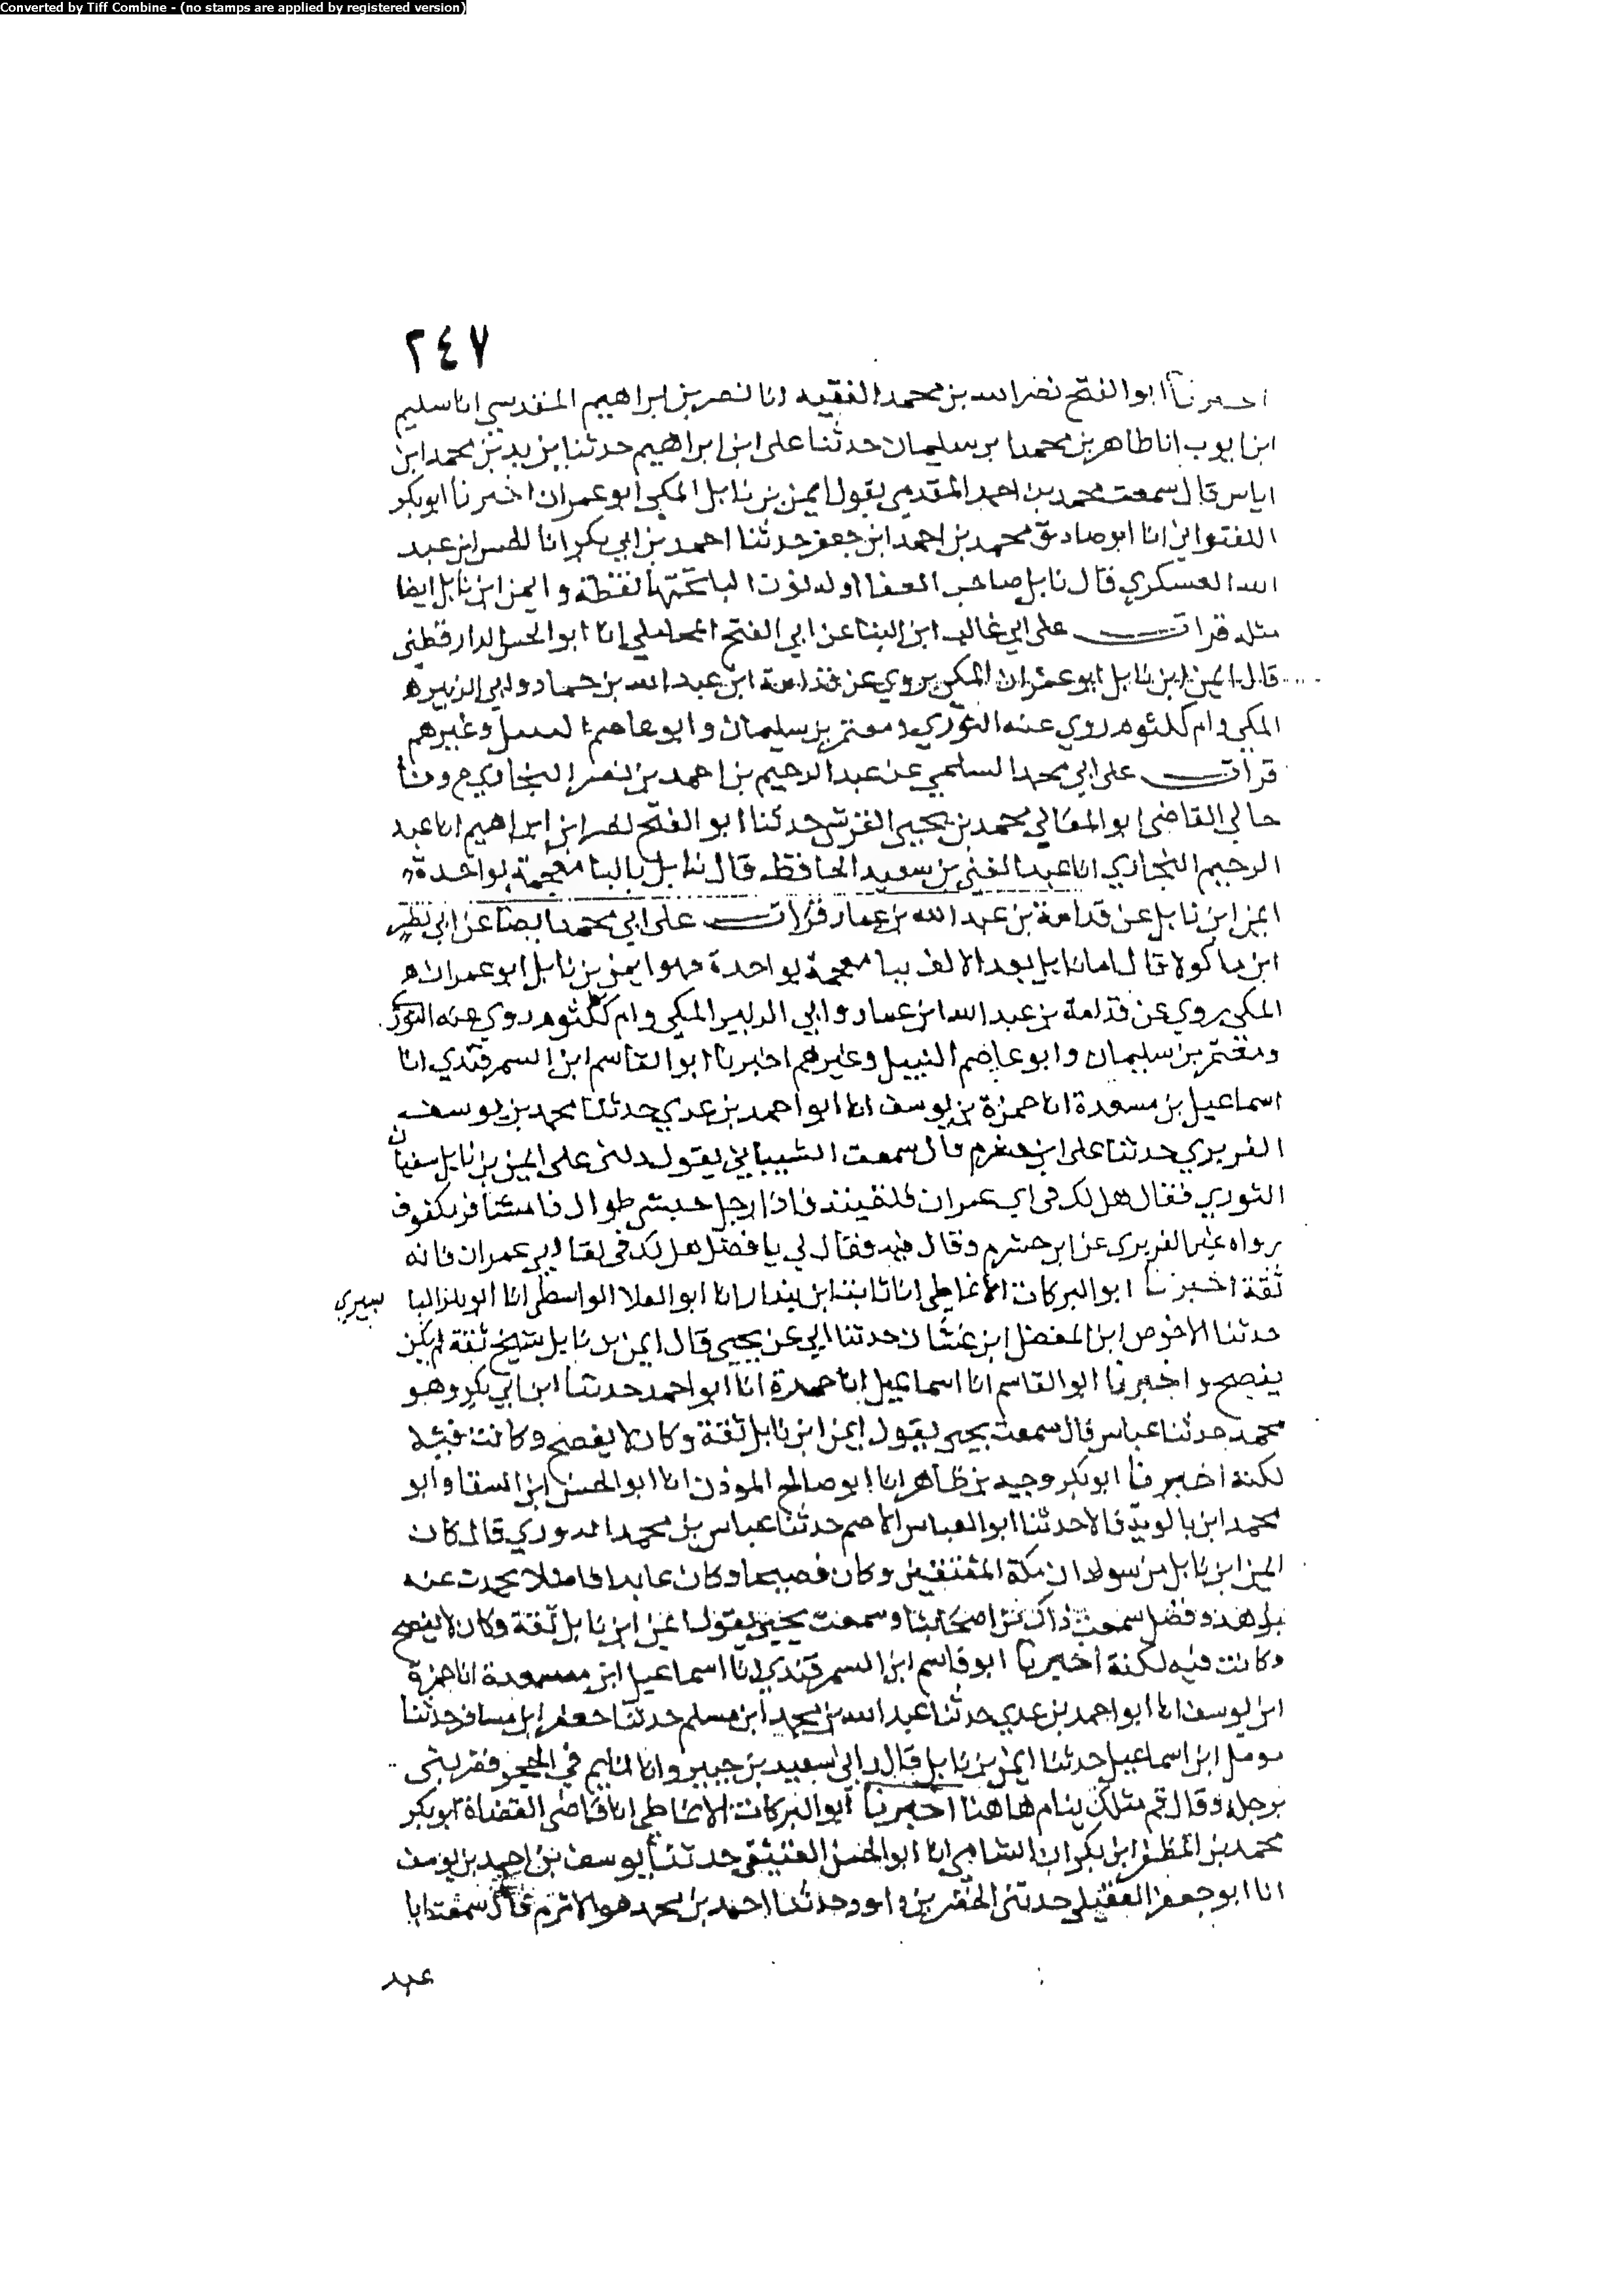 Converted by Tiff Combine - (no stamps are applied by registered version)
٢٤٧
اخبرنا ابو الفتح نصر الله بن محمد الفقيه انا نصر بن ابراهيم المقدسي انا سليم
ابن ايوب انا طاهر بن محمد ابن سليمان حدثنا على ابن ابراهيم حدثنا يزيد بن محمد ابن
اياس قال سمعت محمد بن احمد المقدمي يقول ايمن بن نابل المكي ابو عمران اخبرنا ابو بكر
اللفتواني انا ابو صادق محمد بن احمد ابن جعفر حدثنا احمد بن ابي بكر انا الحسن ابن عبد
الله العسكري قال نابل صاحب العفا اوله نون البا تحتها نقطة وايمن ابن نابل ايضا
مثله قرات على ابي غالب ابن البنا عن ابي الفتح المحاملي انا ابو الحسن الدارقطنى
قال ايمن ابن نابل ابو عمران المكي يروي عن قدامة ابن عبد الله بن حماد وابي الزبير
المكي وام كلثوم روي عنه الثوري ومعتمر بن سليمان وابو عاصم النبيل وغيرهم
قرات على ابي محمد السلمي عن عبد الرحيم بن احمد بن نصر البخاري ح وثنا
خالي القاضى ابو المعالي محمد بن يحيى القرشى حدثنا ابو الفتح نصر ابن ابراهيم انا عبد
الرحيم البخاري انا عبد الغني بن سعيد الحافظ قال نابل بالبا معجمة بواحدة
ايمن ابن نابل عن قدامة بن عبد الله بن عمار قرات على ابي محمد ايضا عن ابي نصر
ابن ماكولا قال اما نابل بعد الالف ببا معجمة بواحدة فهو ايمن بن نابل ابو عمران
المكي يروي عن قدامة بن عبد الله ابن عمار وابي الزبير المكي وام كلثوم روي عنه الثوري
ومعتمر بن سليمان وابو عاصم النبيل وغيرهم اخبرنا ابو القاسم ابن السمرقندي انا
اسماعيل بن مسعدة انا حمزة بن يوسف انا ابو احمد بن عدي حدثنا محمد بن يوسف
الفربري حدثنا على ابن خشرم قال سمعت الشيباني يقول دلنى على ايمن بن نابل سفيان
الثوري فقال هل لك في ابي عمران فلقيته فاذا رجل حبشي طوال ذا مشافر مكفوف
رواه غير الفربري عن ابن خشرم وقال فيه فقال لي يا فضل هل لك في لقا ابي عمران فانه
ثقة اخبرنا ابو البركات الانماطي انا ثابت ابن بندار انا ابو العلا الواسطي انا ابو بكر البا بسيري
حدثنا الاخوص ابن المفضل ابن غسان حدثنا ابي عن يحيى قال ايمن بن نابل شيخ ثقة لم يكن
يفصح واخبرنا ابو القاسم انا اسماعيل انا حمزة انا ابو احمد حدثنا ابن ابي بكر وهو
محمد حدثنا عباس قال سمعت يحيى يقول ايمن ابن نابل ثقة وكان لا يفصح وكانت فيه
لكنة اخبرنا ابو بكر وجيه بن طاهر انا ابو صالح الموذن انا ابو الحسن ابن السقا وابو
محمد ابن بالويه قالا حدثنا ابو العباس الاصم حدثنا عباس بن محمد الدوري قال كان
ايمن ابن نابل من سولدان مكة وكان فصيحا وكان عابدا فاضلا يحدث عنه
وفضل سمعت ذاك من اصحابنا وسمعت يحيى يقول ايمن ابن نابل ثقة وكان لا يفصح
وكانت فيه لكنة اخبرنا ابو قاسم ابن السمرقندي انا اسماعيل ابن مسعدة انا حمزة
ابن يوسف انا ابو احمد بن عدي حدثنا عبد الله بن محمد ابن مسلم حدثنا جعفر ابن مسافر حدثنا
مومل ابن اسماعيل حدثنا ايمن بن نابل قال راني سعيد بن جبير وانا نايم في الحجر فضربنى
برجله وقال قم مثلك ينام هاهنا اخبرنا ابو البركات الانماطي انا قاضى القضاة ابو بكر
محمد بن المظفر ابن بكران الشامي انا ابو الحسن العتيقي حدثنا يوسف بن احمد بن يوسف
انا ابو جعفر العقيلي حدثنى الخضر بن داود حدثنا احمد بن محمد هو الاثرم قال سمعت ابا
عبد